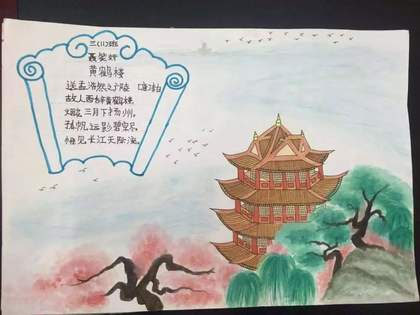 三(1)班
聂奖妤
黄鹤楼
送孟浩然之广陵 (唐)李白
故人西辞黄鹤楼,
烟花三月下扬州。
孤帆远影碧空尽,
惟见长江天际流。